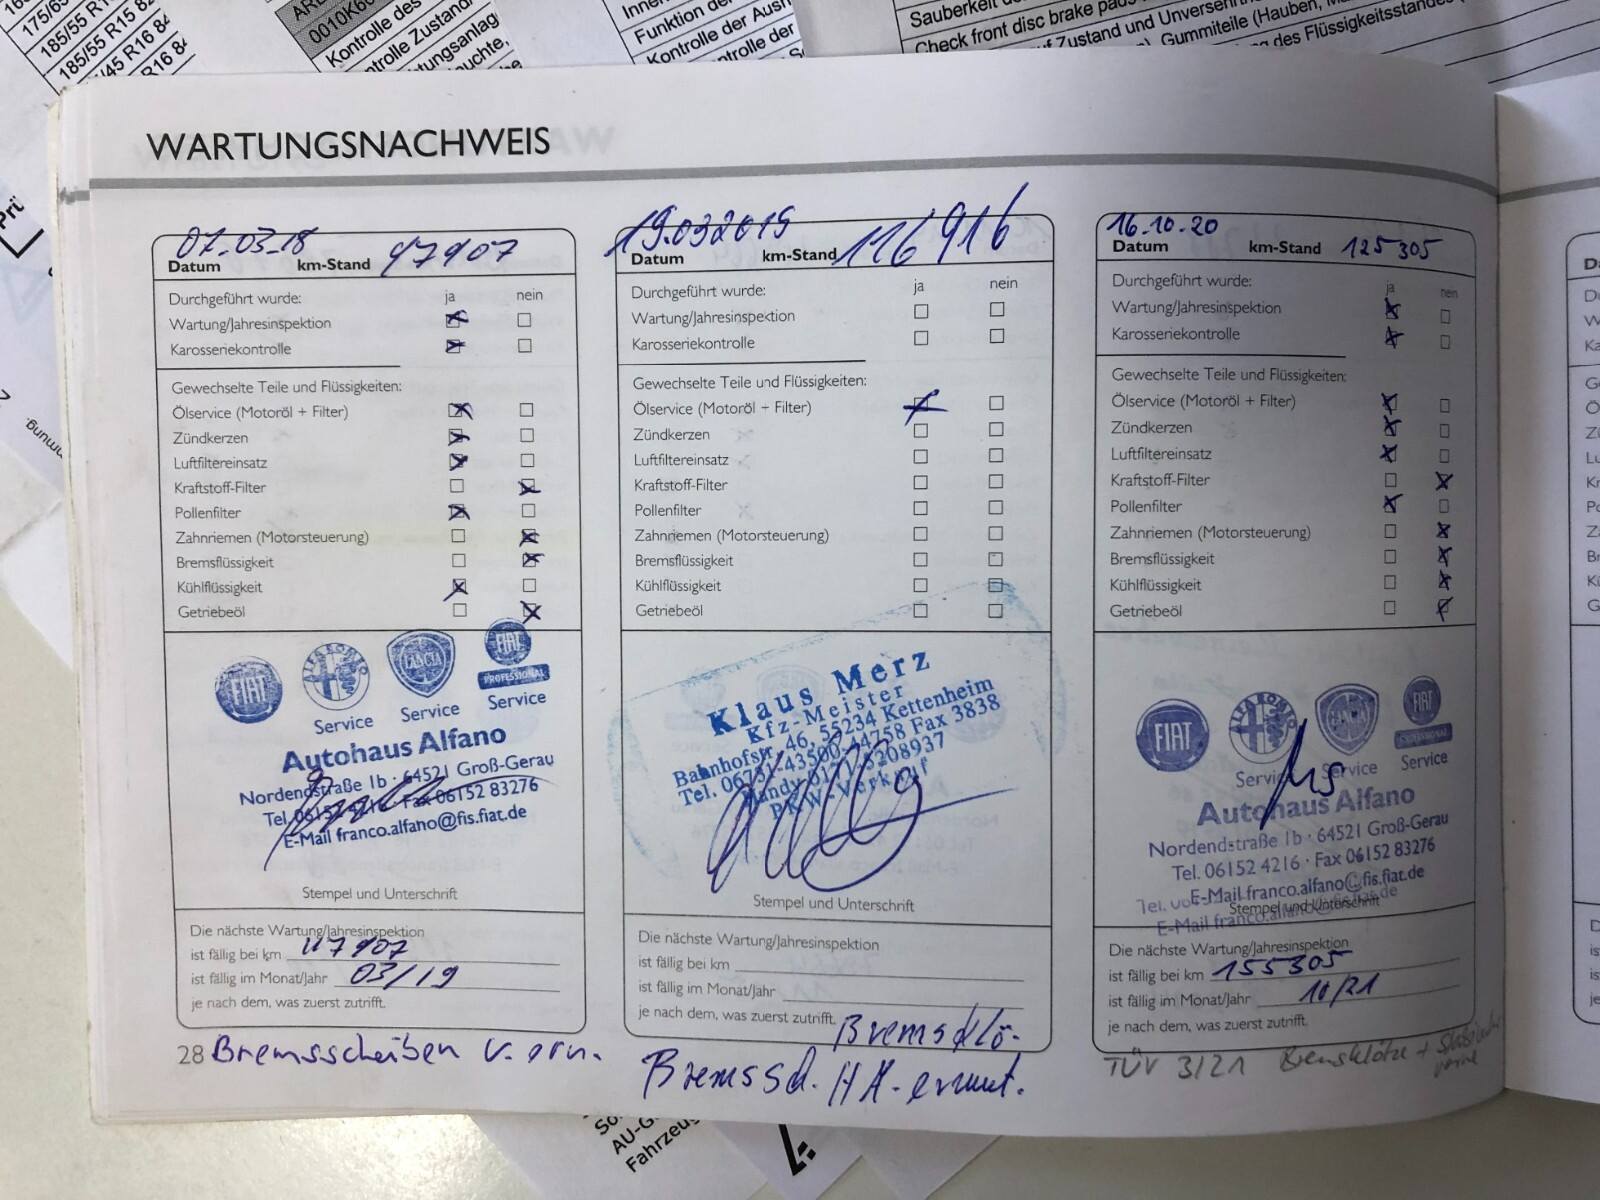 175/65
185/55 R15 82
185/55 R16 84
/45 R16 84
R16 84
0010K60
Kontrolle des
ntrolle Zustand
tungsanlag
uchte,
Funktion der
Kontrolle der Ausr
Kontrolle der
Sauberkeit de
Check front disc brake pads
uf Zustand und Unversehrth
Gummiteile (Hauben, Ma
des Flüssigkeitsstandes
Prü
WARTUNGSNACHWEIS
07.03.18 97907
Datum km-Stand
Durchgeführt wurde: ja nein
Wartung/Jahresinspektion
Karosseriekontrolle
Gewechselte Teile und Flüssigkeiten:
Ölservice (Motoröl + Filter)
Zündkerzen
Luftfiltereinsatz
Kraftstoff-Filter
Pollenfilter
Zahnriemen (Motorsteuerung)
Bremsflüssigkeit
Kühlflüssigkeit
Getriebeöl
FIAT ALFA ROMEO LANCIA FIAT
PROFESSIONAL
Service Service Service
Autohaus Alfano
Nordendstraße 1b · 64521 Groß-Gerau
Tel. 06152 4216 · Fax 06152 83276
E-Mail franco.alfano@fis.fiat.de
Stempel und Unterschrift
Die nächste Wartung/Jahresinspektion
ist fällig bei km 117907
ist fällig im Monat/Jahr 03/19
je nach dem, was zuerst zutrifft.
28 Bremsscheiben v. ern.
19.03.2019 116916
Datum km-Stand
Durchgeführt wurde: ja nein
Wartung/Jahresinspektion
Karosseriekontrolle
Gewechselte Teile und Flüssigkeiten:
Ölservice (Motoröl + Filter)
Zündkerzen
Luftfiltereinsatz
Kraftstoff-Filter
Pollenfilter
Zahnriemen (Motorsteuerung)
Bremsflüssigkeit
Kühlflüssigkeit
Getriebeöl
Klaus Merz
Kfz-Meister
Bahnhofstr. 46, 55234 Kettenheim
Tel. 06731-43500-44758 Fax 3838
Handy 0171-5208937
PKW-Verkauf
Stempel und Unterschrift
Die nächste Wartung/Jahresinspektion
ist fällig bei km
ist fällig im Monat/Jahr
je nach dem, was zuerst zutrifft.
Bremsklö-
Bremssch. HA. erneut.
16.10.20 125305
Datum km-Stand
Durchgeführt wurde: ja nein
Wartung/Jahresinspektion
Karosseriekontrolle
Gewechselte Teile und Flüssigkeiten:
Ölservice (Motoröl + Filter)
Zündkerzen
Luftfiltereinsatz
Kraftstoff-Filter
Pollenfilter
Zahnriemen (Motorsteuerung)
Bremsflüssigkeit
Kühlflüssigkeit
Getriebeöl
FIAT ALFA ROMEO LANCIA FIAT
PROFESSIONAL
Service Service Service
Autohaus Alfano
Nordendstraße 1b · 64521 Groß-Gerau
Tel. 06152 4216 · Fax 06152 83276
E-Mail franco.alfano@fis.fiat.de
Stempel und Unterschrift
E-Mail franco.alfano@fis.fiat.de
Die nächste Wartung/Jahresinspektion
ist fällig bei km 155305
ist fällig im Monat/Jahr 10/21
je nach dem, was zuerst zutrifft.
TÜV 3/21 Bremsklötze +
vorne
AU-G
Fahrzeug